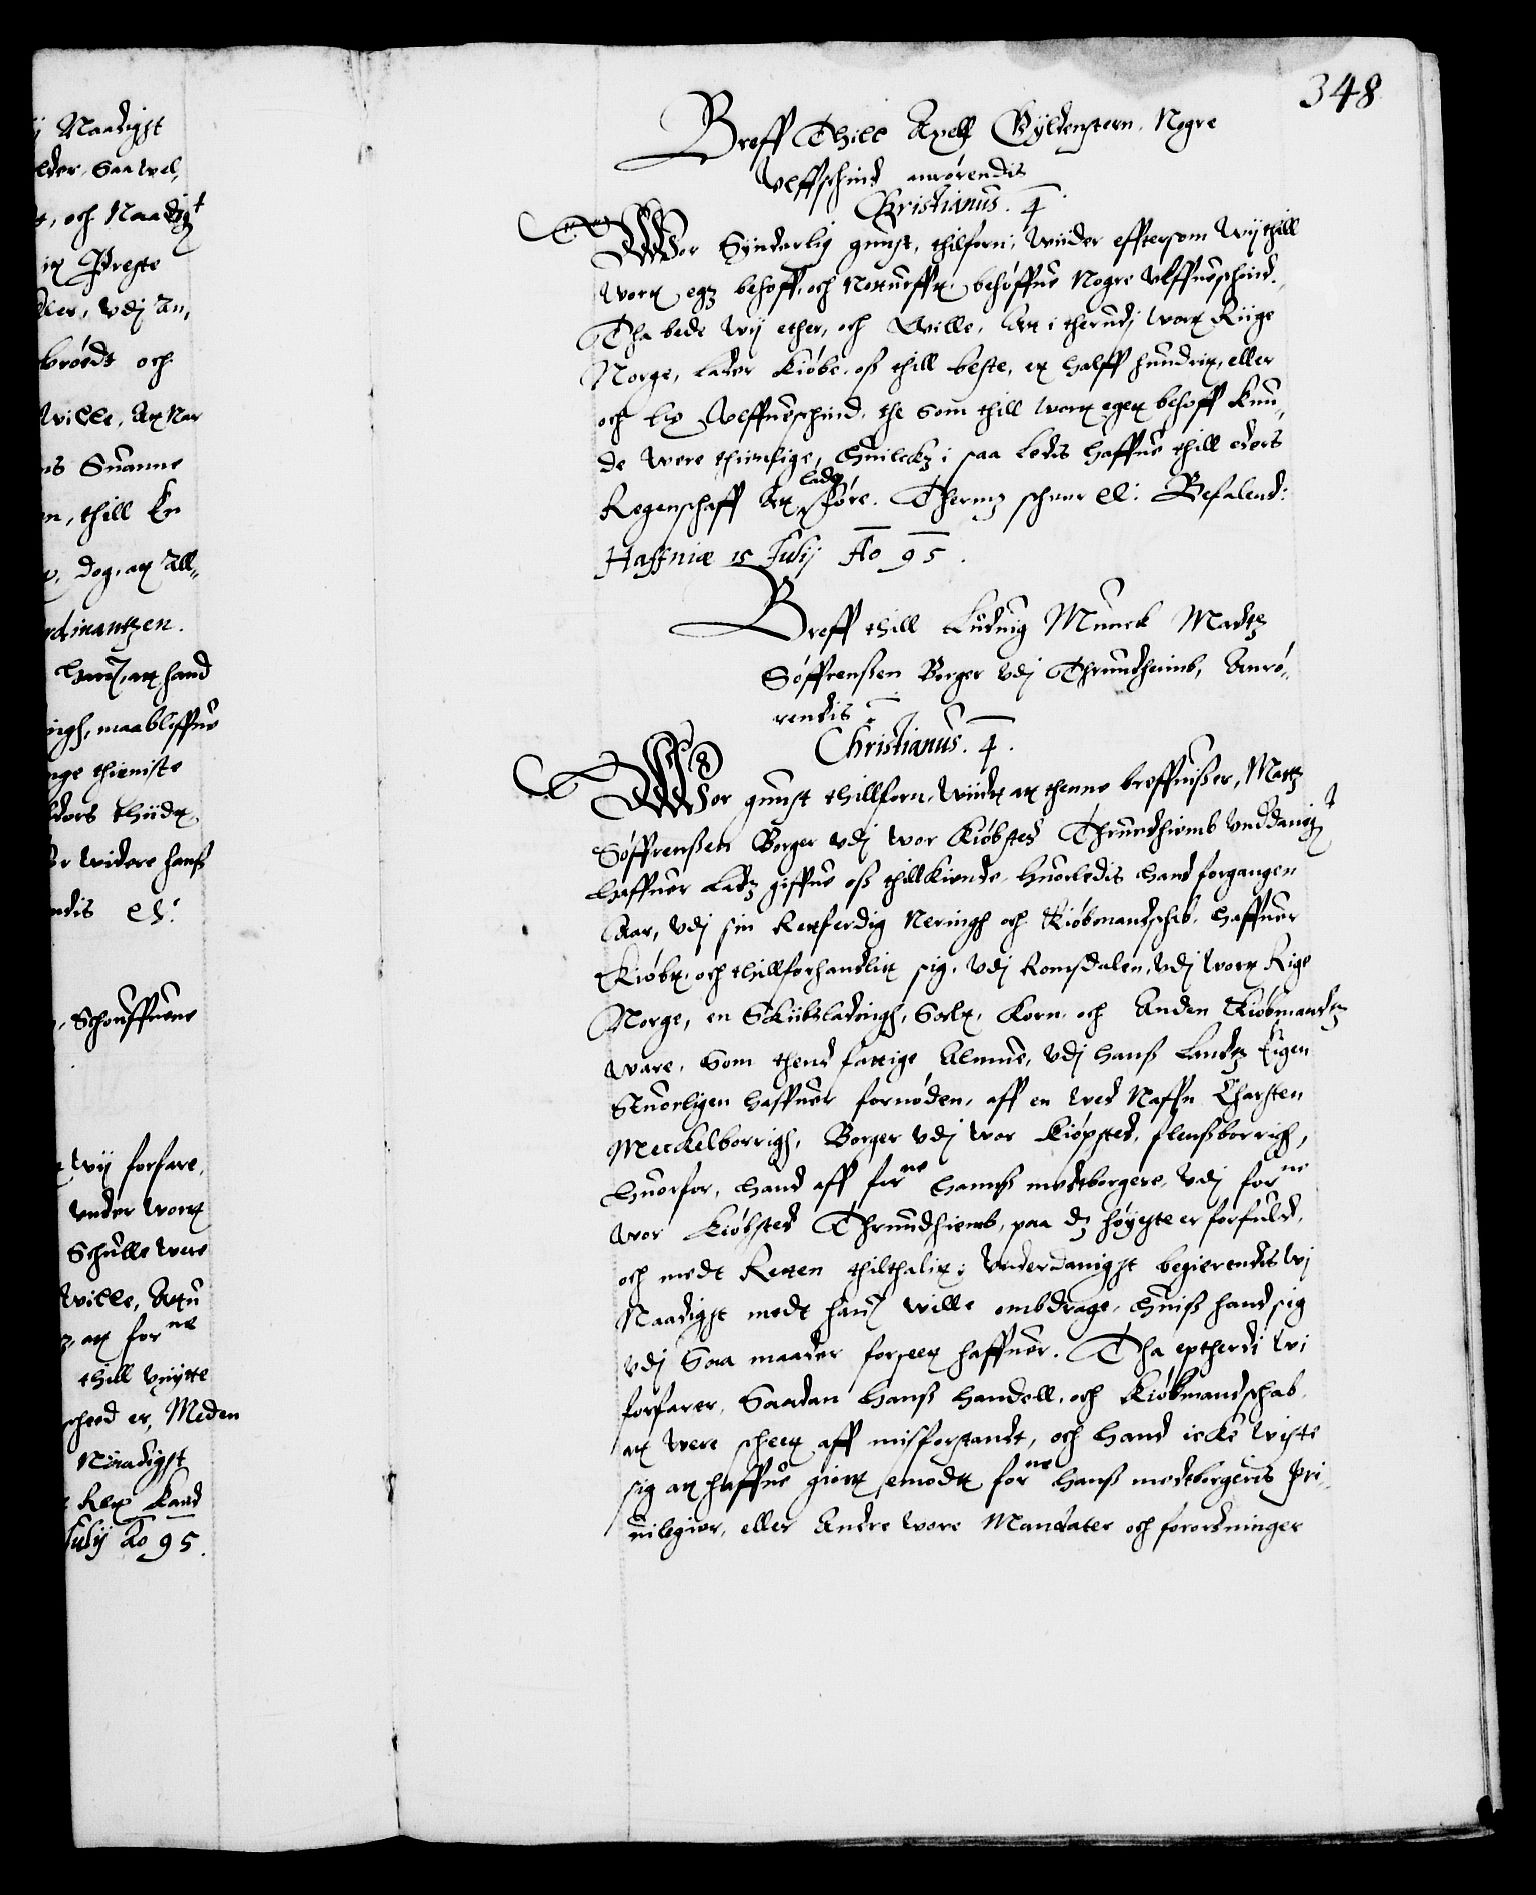 348
Breff Thill Axell Gyldenstern, Nogre
Vlffschind anrörendis
Christianus. 4
Wor Synderlig gunst, thilforn, Wiider effttersom Wij thill
Wortt egz behoff, och Notturfftt behöffue Nogre Vlffueschind.
Tha bede Wij ether, och Wille, Att i therudj Wortt Riige
Norge, lader Kiöbe oss thill beste, et halff hundritt, eller
och Vlffueschind, the Som thill Wortt egett behoff Kun,
de Were thienlige, Huilckz i saa ledis haffue thill eders
Regenschaff Att lade före. Thermz scheer etc: Befalend:
Haffniæ 15 Julij Ao 95.
Breff thill Ludwig Munck Madtz
Söffrenssen Borger vdj Thrundheimb, Anrö„
rendis
Christianus. 4.
Wor gunst thillforn, Wiidtt att thenne breffuisser, Mattz
Söffrenssen Borger vdj Wor Kiöbsted Thrundhiemb Vnddanigst
haffuer ladz giffue oss thillKiende, huorledis hand forgangen
Aar, vdj sin Rettferdig Neringh och Kiöbmandschab, haffuer
Kiöbtt, och thillforhandlitt sig, vdj Romsdalen, vdj Wortt Rige
Norge, en Skiibsladingh, Saltt, Korn, och Anden Kiöbmandtz
Ware, Som thend fattige Almue, vdj hans Landtz Eigen
Aluorligen haffuer fornöden, aff en Wed Naffn Charsten
Meckelborrigh, Borger vdj Wor Kiöpsted, flenssborrigh,
Huorfor, hand aff forne hanss medtborgere, vdj forne
Wor Kiöbsted Thrundhiemb, paa dz höyeste er forfuld,
och medt Retten thilthalitt, Vnderdanigst begierendis Wj
Naadigst medt hanz Wille ombdrage, huiss hand sig
vdj Saa maader forseett haffuer. Tha epttherdi Wi
forfarer, Saadan hanss Handell, och Kiöbmandschab,
att Were scheett aff misforstandt, och hand icke Wiste
sig att haffue giortt emodtt forne hanss medtborgeris Pri„
uilegier, eller Andre Wore Mandater och forordninger
Naadigst
Saa vel,
och Naadigst
Preste
vdj An,
och
Wille, Att Naar
Suanne
thill En
dog, att All„
ordinantzen.
hand
maa bliffue
thieniste
widere hanss
etc:
Schouffuene
Wij forfare,
vnder Wortt
Schulle Were
Wille, Att
att forne
thill
er, Meden
Naadigst
Kand
Julij Ao 95.